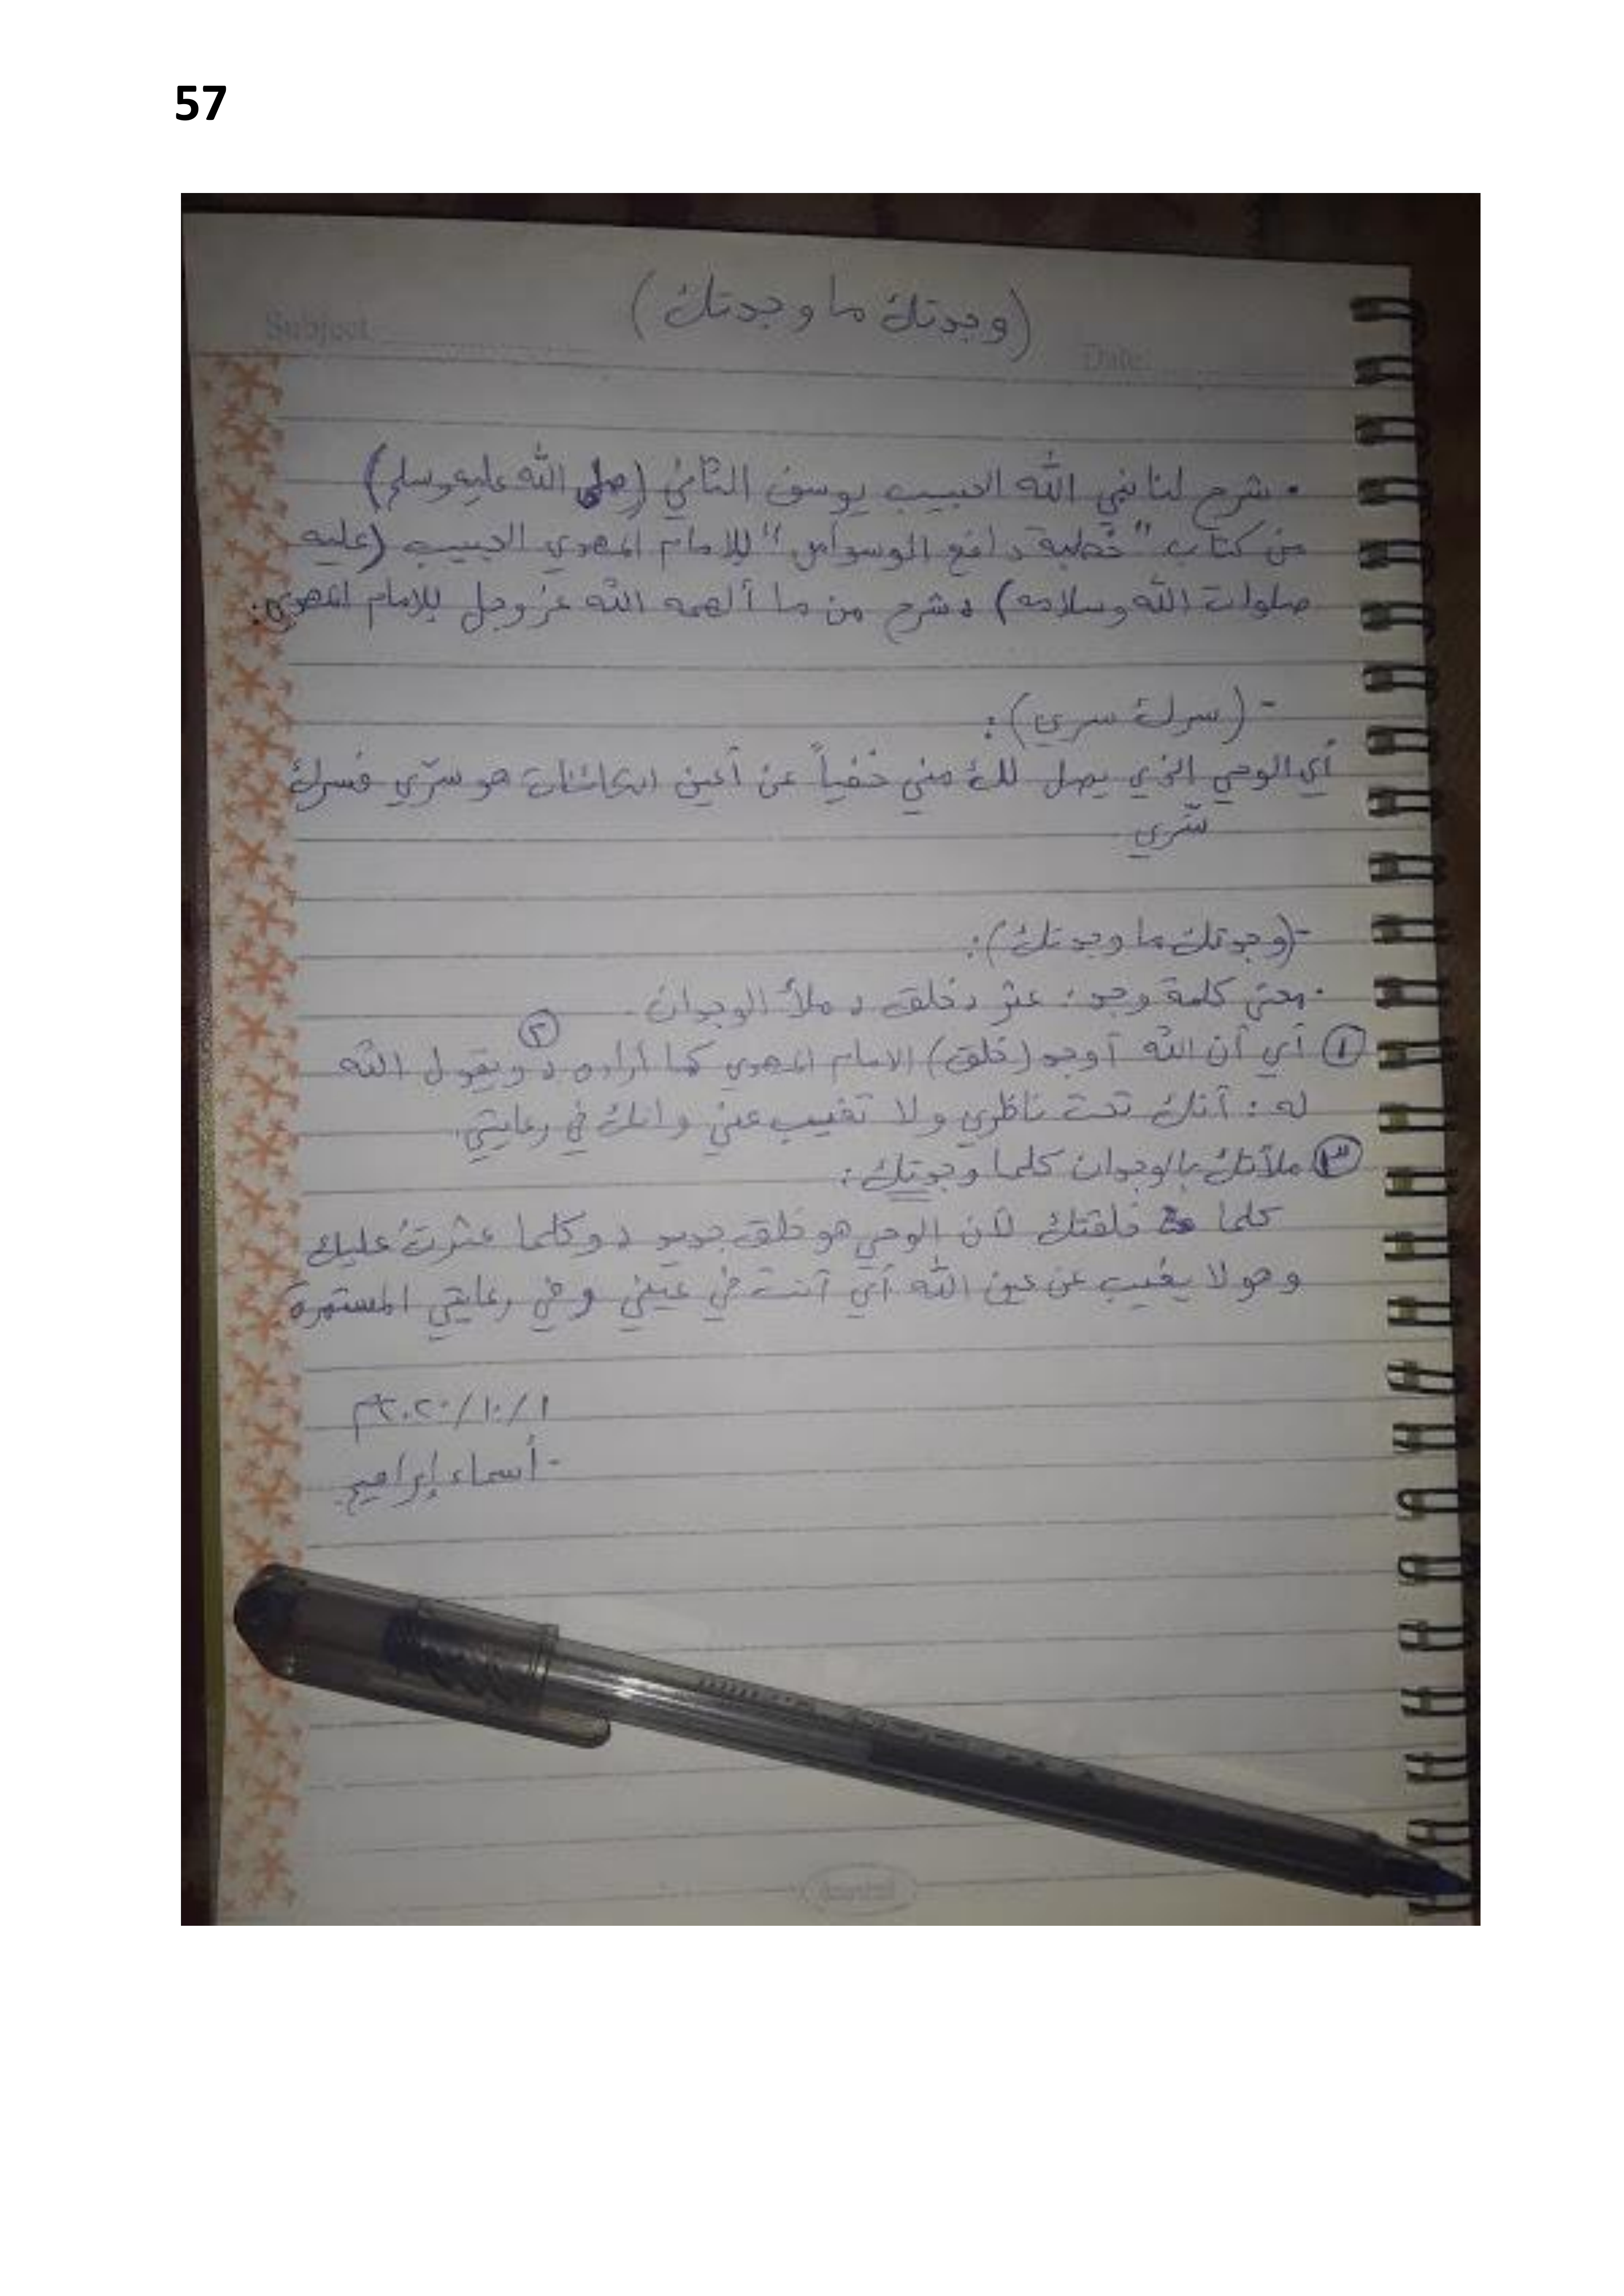 57
(وجدتك ما وجدتك)
Subject:
Date:
• شرح لنا نبي الله الحبيب يوسف الثاني (صلى الله عليه وسلم)
من كتاب "خطبة دافع الوسواس" للامام المهدي الحبيب (عليه
صلوات الله وسلامه) ، شرح من ما ألهمه الله عز وجل للامام المهدي:
- (سرك سري):
أي الوحي الذي يصل لك مني خفياً عن أعين الكائنات هو سرّي فسرك
سّري
- (وجدتك ما وجدتك):
• معنى كلمة وجد: عثر ، خلق ، ملأ الوجدان.
① أي أن الله أوجد (خلق) الامام المهدي كما أراده ، ② ويقول الله
له: أنك تحت ناظري ولا تغيب عني وانك في رعايتي.
③ ملأتك بالوجدان كلما وجدتك:
كلما خلقتك لأن الوحي هو خلق جديد ، وكلما عثرتُ عليك
وهو لا يغيب عن عين الله أي أنت في عيني وفي رعايتي المستمرة
١/١٠/٢٠٢٠م
- أسماء إبراهيم.